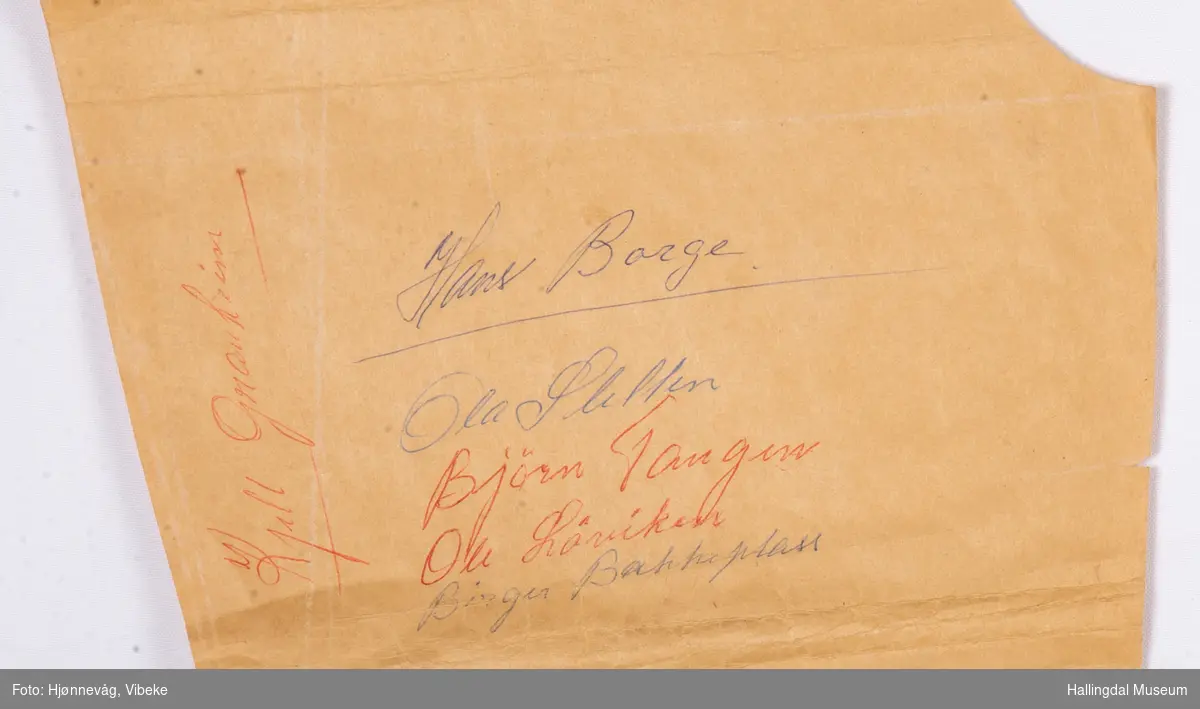 Kjell Granheim
Hans Borge
Ola Sletten
Björn Tangen
Ole Löviken
Birger Bakkeplass
Foto: Hjønnevåg, Vibeke
Hallingdal Museum